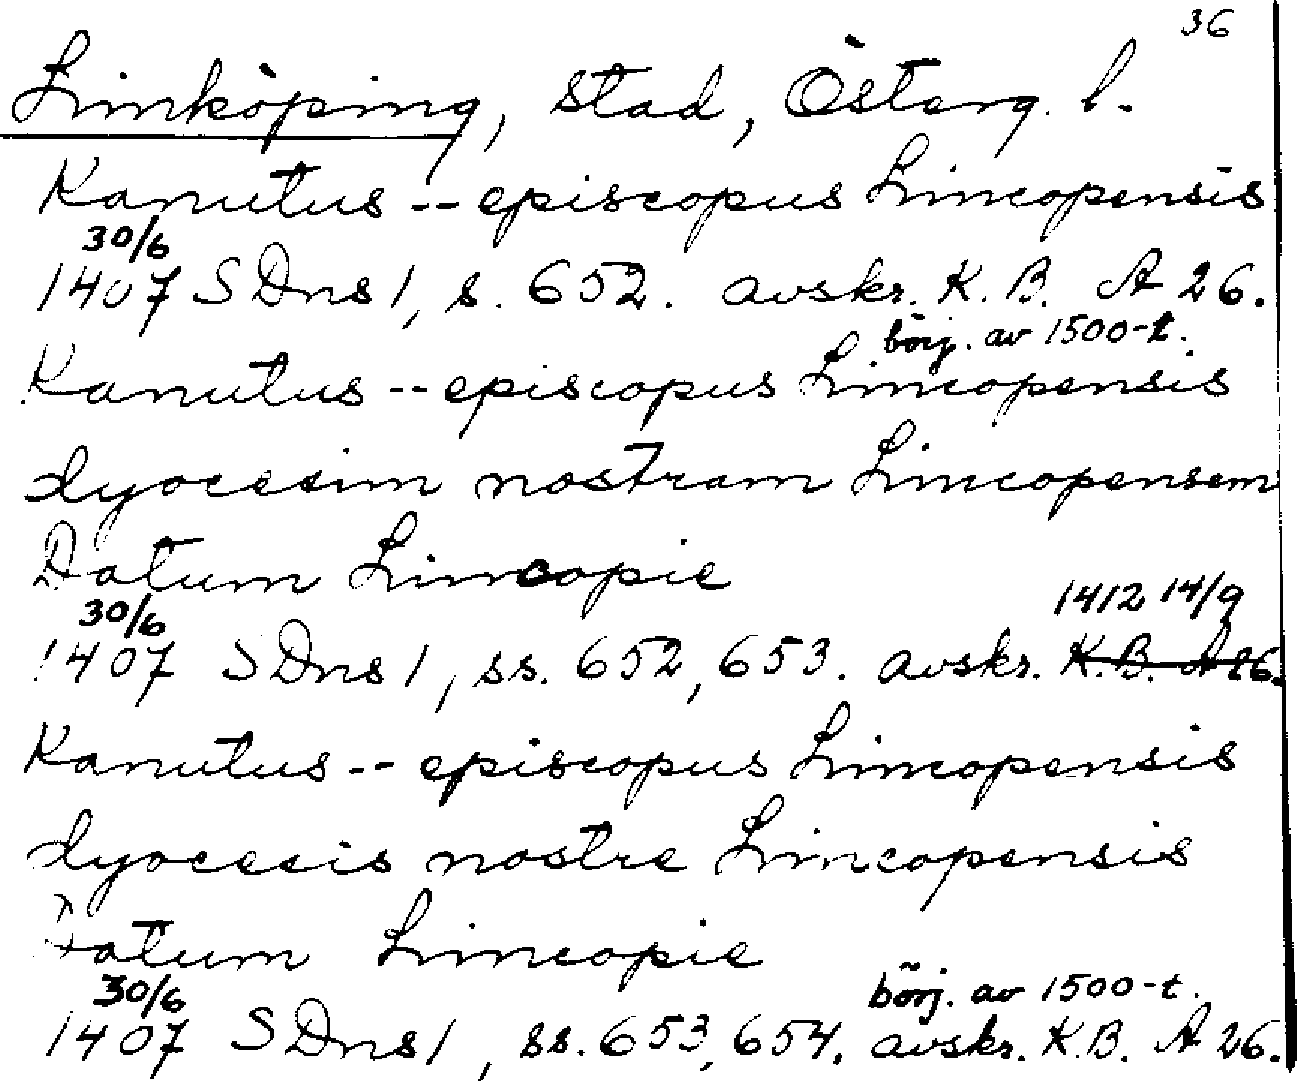 36
Linköping, stad, Österg. l.
Kanutus -- episcopus Lincopensis
30/6
1407 SDns 1, s. 652. avskr. K. B. A 26.
börj. av 1500-t.
Kanutus -- episcopus Lincopensis
dyocesim nostram Lincopensem
Datum Lincopie
30/6 1412 14/9
1407 SDns 1, ss. 652, 653. avskr. K.B. A 26.
Kanutus -- episcopus Lincopensis
dyocesis nostre Lincopensis
Datum Lincopie
30/6 börj. av 1500-t.
1407 SDns 1, ss. 653, 654. avskr. K.B. A 26.